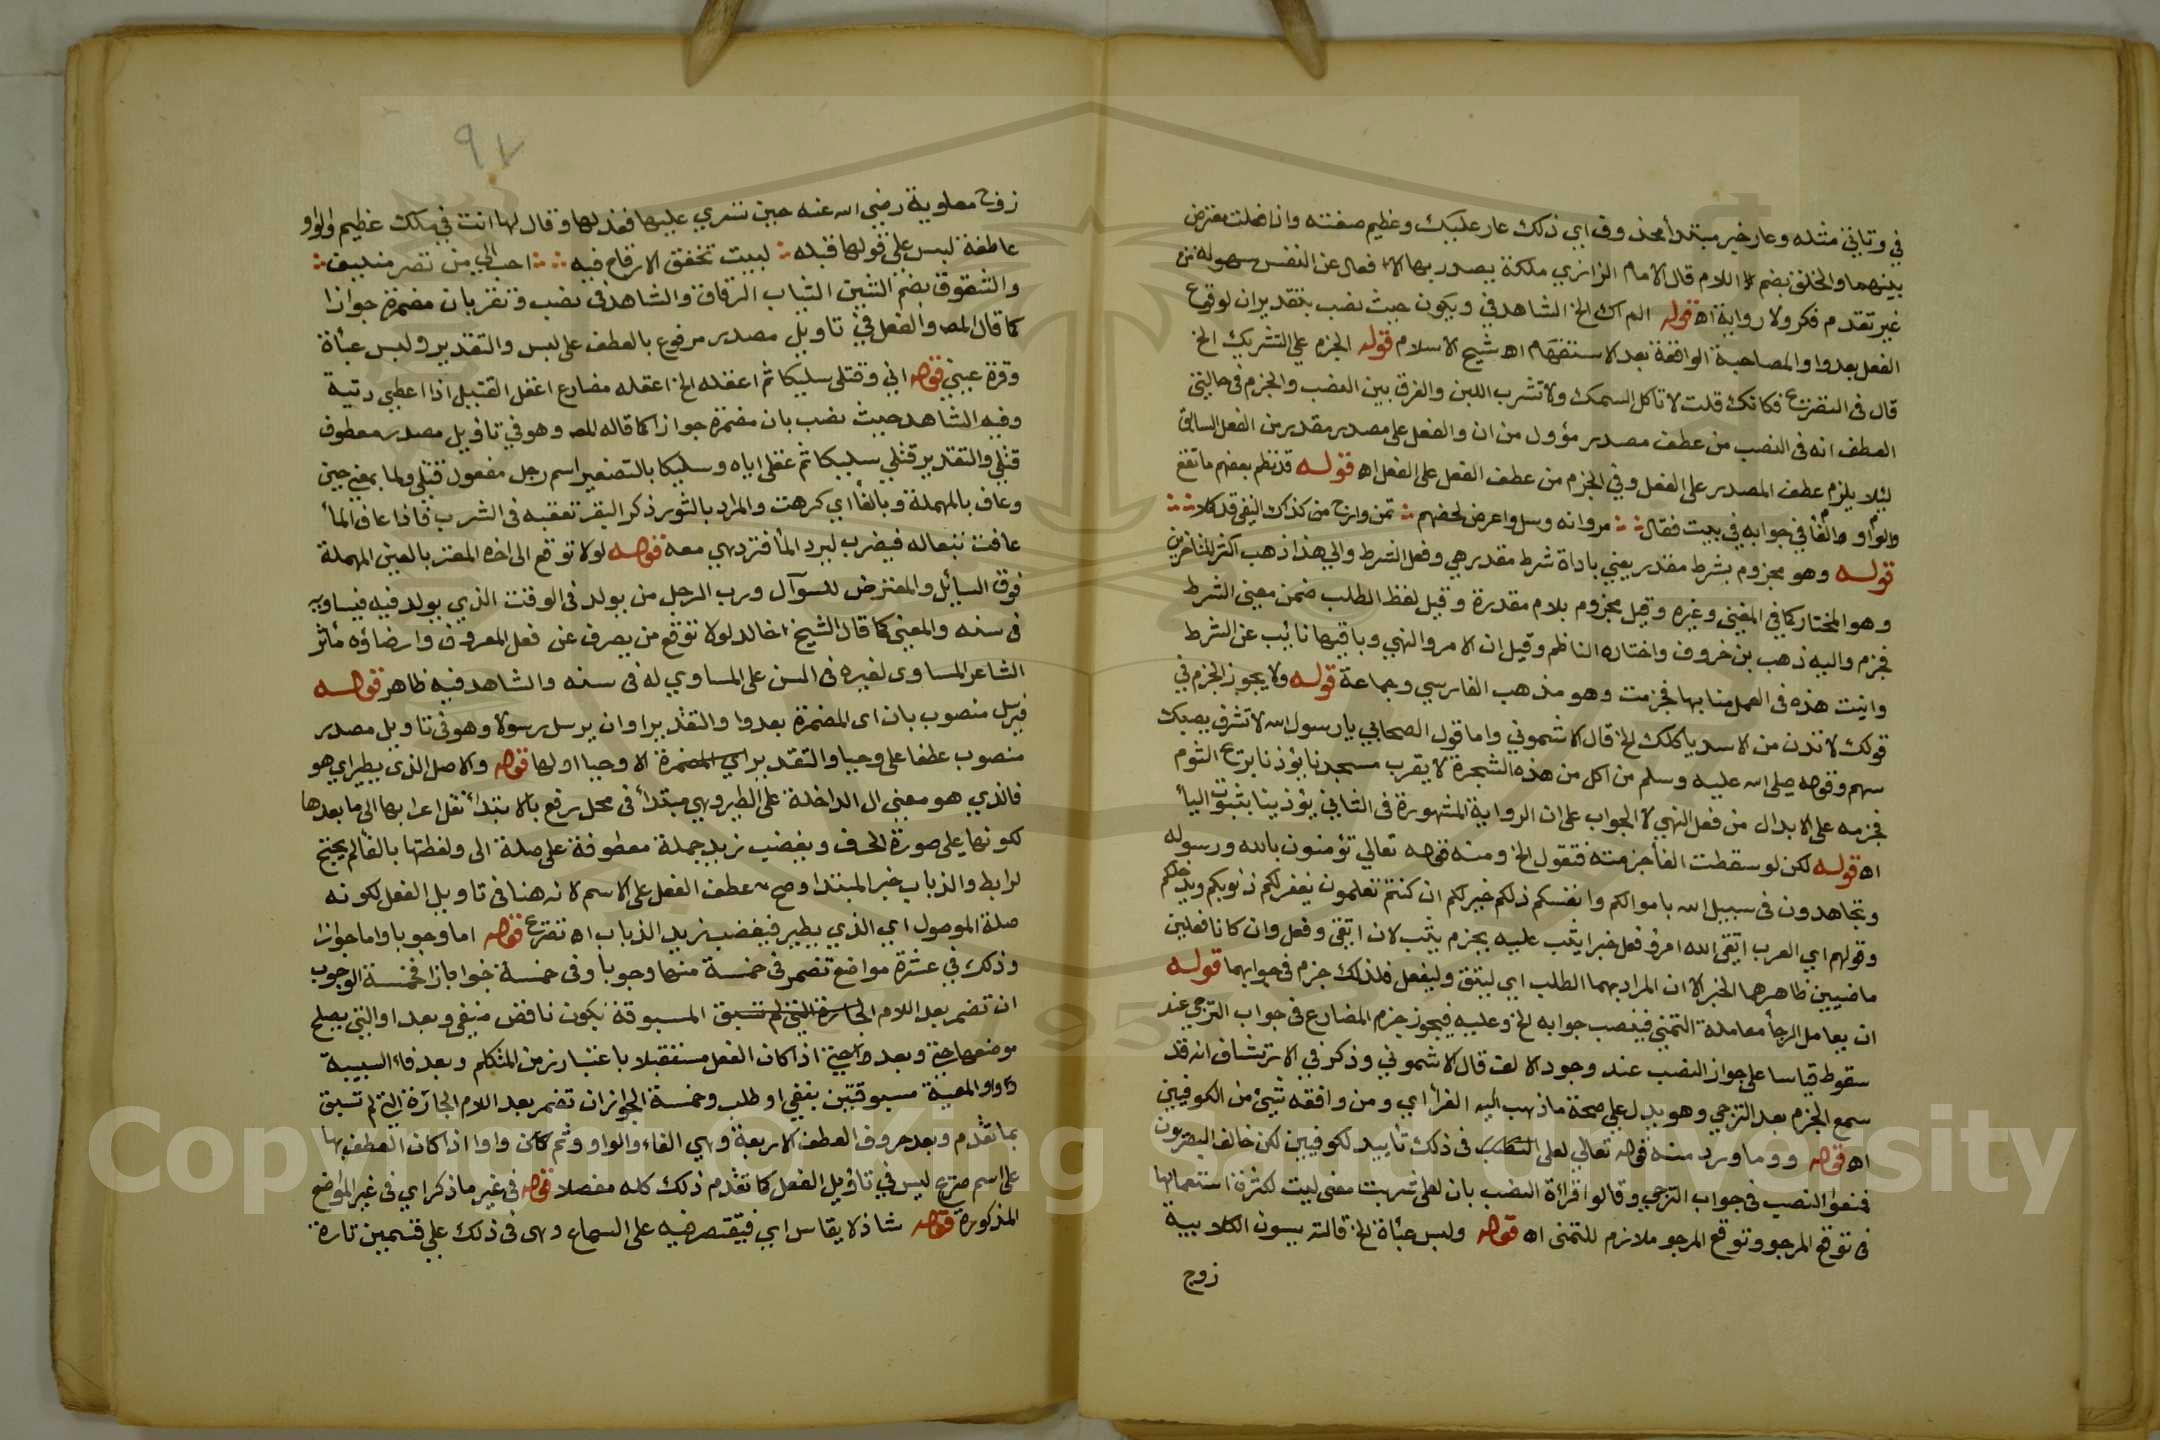 في وتاتي مثله وعار خبر مبتدأ محذوف اي ذلك عار عليك وعظيم صفته واذا فعلت معترض
بينهما والخلق بضم اللام قال الامام الرازي ملكة يصدر بها الافعال عن النفس بسهوله من
غير تقدم فكر ولا رواية اه قوله الم اك الخ الشاهد في ويكون حيث نصب بتقدير ان لوقوع
الفعل بعد واو المصاحبة الواقعة بعد الاستفهام اه شيخ الاسلام قوله الجزم على التشريك الخ
قال في التصريح فكانك قلت لا تاكل السمك ولا تشرب اللبن والفرق بين النصب والجزم في حالتي
العطف انه في النصب من عطف مصدر مؤول من ان والفعل على مصدر مقدر من الفعل السابق
ليلا يلزم عطف المصدر على الفعل وفي الجزم من عطف الفعل على الفعل اه قوله قد نظم بعضهم ما تقع
والواو والفا في جوابه في بيت فقال مر وانه وسل واعرض لحضهم تمن وارج من كذاك النفي قد كلا
قوله وهو مجزوم بشرط مقدر يعني باداة شرط مقدر هي وفعل الشرط والى هذا ذهب اكثر المتاخرين
وهو المختار كما في المغني وغيره وقيل مجزوم بلام مقدرة وقيل لفظ الطلب ضمن معني الشرط
فجزم واليه ذهب بن خروف واختاره الناظم وقيل ان الامر والنهي وباقيها نايب عن الشرط
وانيت هذه في العمل منابها فجزمت وهو مذهب الفارسي وجماعة قوله ولا يجوز الجزم في
قولك لا تدن من الاسد ياكلك الخ قال الاشموني واما قول الصحابي يا رسول الله لا تشرف يصبك
سهم وقوله صلى الله عليه وسلم من اكل من هذه الشجرة لا يقرب مسجدنا يؤذنا بريح الثوم
فجزمه على الابدال من فعل النهي لا الجواب على ان الرواية المشهورة في الثاني يؤذينا بثبوت اليا
اه قوله لكن لو سقطت الفا جزمته فتقول الخ ومنه قوله تعالي تؤمنون بالله ورسوله
وتجاهدون في سبيل الله باموالكم وانفسكم ذلكم خير لكم ان كنتم تعلمون يغفر لكم ذنوبكم ويدخلكم
وقولهم اي العرب اتقى الله امرؤ فعل خيرا يثب عليه بجزم يثب لان اتقي وفعل وان كانا فعلين
ماضيين ظاهرهما الخبر الا ان المراد بهما الطلب اي ليتق وليفعل فلذلك جزم في جوابهما قوله
ان يعامل الرجأ معاملة التمني فينصب جوابه الخ وعليه فيجوز جزم المضارع في جواب الترجي عند
سقوط قياسا على جواز النصب عند وجود الا لف قال الاشموني وذكر في الارتشاف انه قد
سمع الجزم بعد الترجي وهو يدل على صحة ما ذهب اليه الفرأ اي ومن وافقه شيئ من الكوفيين
اه قوله ووما ورد منه قوله تعالي لعلى في ذلك تأييد لكوفيين لكن خالف البصريون
فمنعوا النصب في جواب الترجي وقالوا قراة النصب بان لعل شربت معنى ليت لكثرة استعمالها
في توقع المرجو وتوقع المرجو ملازم للتمنى اه قوله ولبس عبأة الخ قالته ميسون الكلابيية
زوج
٩٧
زوج معاوية رضي الله عنه حين تسري عليها فعذلها وقال لها انت في ملك عظيم والواو
عاطفة لبس على قولها قبله لبيت تخفق الارواح فيه احب الي من قصر منيف
والشفوف بضم الشين الثياب الرقاق والشاهد في نصب وتقر بان مضمرة جوازا
كما قال المص والفعل في تاويل مصدر مرفوع بالعطف على لبس والتقدير ولبس عبأة
وقرة عيني قوله اني وقتلى سليكا ثم اعقله الخ اعقله مضارع اعقل القتيل اذا اعطي ديتة
وفيه الشاهد حيث نصب بان مضمرة جوازا كما قاله المص وهو في تاويل مصدر معطوف
قتلي والتقدير قتلي سليكا ثم عقلى اياه وسليكا بالتصغير اسم رجل مفعول قتلي ولما بمعني حين
وعاف بالمهملة وبالفأ اي كرهت والمراد بالثور ذكر البقر تعقبه في الشرب فاذا عاف الما
عافت فيضرب ليرد الما فترد هي معه قوله لولا توقع الى اخره المعتر بالعين المهملة
فوق السايل والمعترض للسوآل ورب الرجل من يولد في الوقت الذي يولد فيه فيساويه
في سنه والمعني كما قال الشيخ خالد لولا توقع من يصرف عن فعل المعروف وارضاؤه ماثر
الشاعر المساوى لغيره في السن على المساوي له في سنه والشاهد فيه ظاهر قوله
فيرسل منصوب بان اى المضمرة بعد واو التقدير او ان يرسل رسولا وهو في تاويل مصدر
منصوب عطفا على وحيا والتقدير اي المضمرة الا وحيا اولها قوله والاصل الذى يطير اي هو
فالذي هو معني ال الداخلة على الطير وهي مبتدأ في محل رفع بالابتدأ نقل اعرابها الى ما بعدها
لكونها على صورة الحرف ويغضب زيد جملة معطوفة على صلة الى ولفظتها بالفا لم يحتج
لرابط والذباب خبر المبتدا وصح عطف الفعل على الاسم لانه هنا في تاويل الفعل لكونه
صلة الموصول اي الذي يطير فيغضب زيد الذباب اه تصريح قوله اما وجوبا واما جوازا
وذلك في عشرة مواضع تضمر في خمسة منها وجوبا وفي خمسة جوازا فخمسة الوجوب
ان تضمر بعد اللام الجارة التي لم تسبق المسبوقة بكون ناقص منفي وبعد او التي يصلح
موضعها حتي وبعد حتي اذا كان الفعل مستقبلا باعتبار زمن المتكلم وبعد فاء السببية
وواو المعية مسبوقتين بنفي او طلب وخمسة الجواز ان تضمر بعد اللام الجارة التي لم تسبق
بما تقدم وبعد حروف العطف الاربعة وهي الفاء والواو وثم واو اذا كان العطف بها
على اسم صريح ليس في تاويل الفعل كما تقدم ذلك كله مفصلا قوله في غير ما ذكر اي في غير المواضع
المذكورة قوله شاذ لا يقاس اي فيقتصر فيه على السماع وهي في ذلك علي قسمين تارة
Copyright © King Saud University